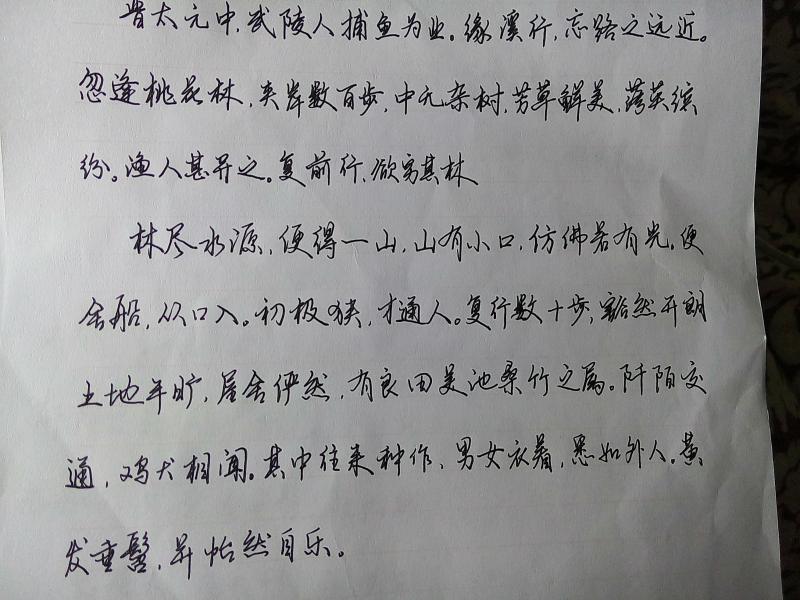 晋太元中,武陵人捕鱼为业。缘溪行,忘路之远近。
忽逢桃花林,夹岸数百步,中无杂树,芳草鲜美,落英缤
纷。渔人甚异之。复前行,欲穷其林
林尽水源,便得一山,山有小口,仿佛若有光。便
舍船,从口入。初极狭,才通人。复行数十步,豁然开朗
土地平旷,屋舍俨然,有良田美池桑竹之属。阡陌交
通,鸡犬相闻。其中往来种作、男女衣着,悉如外人。黄
发垂髫,并怡然自乐。